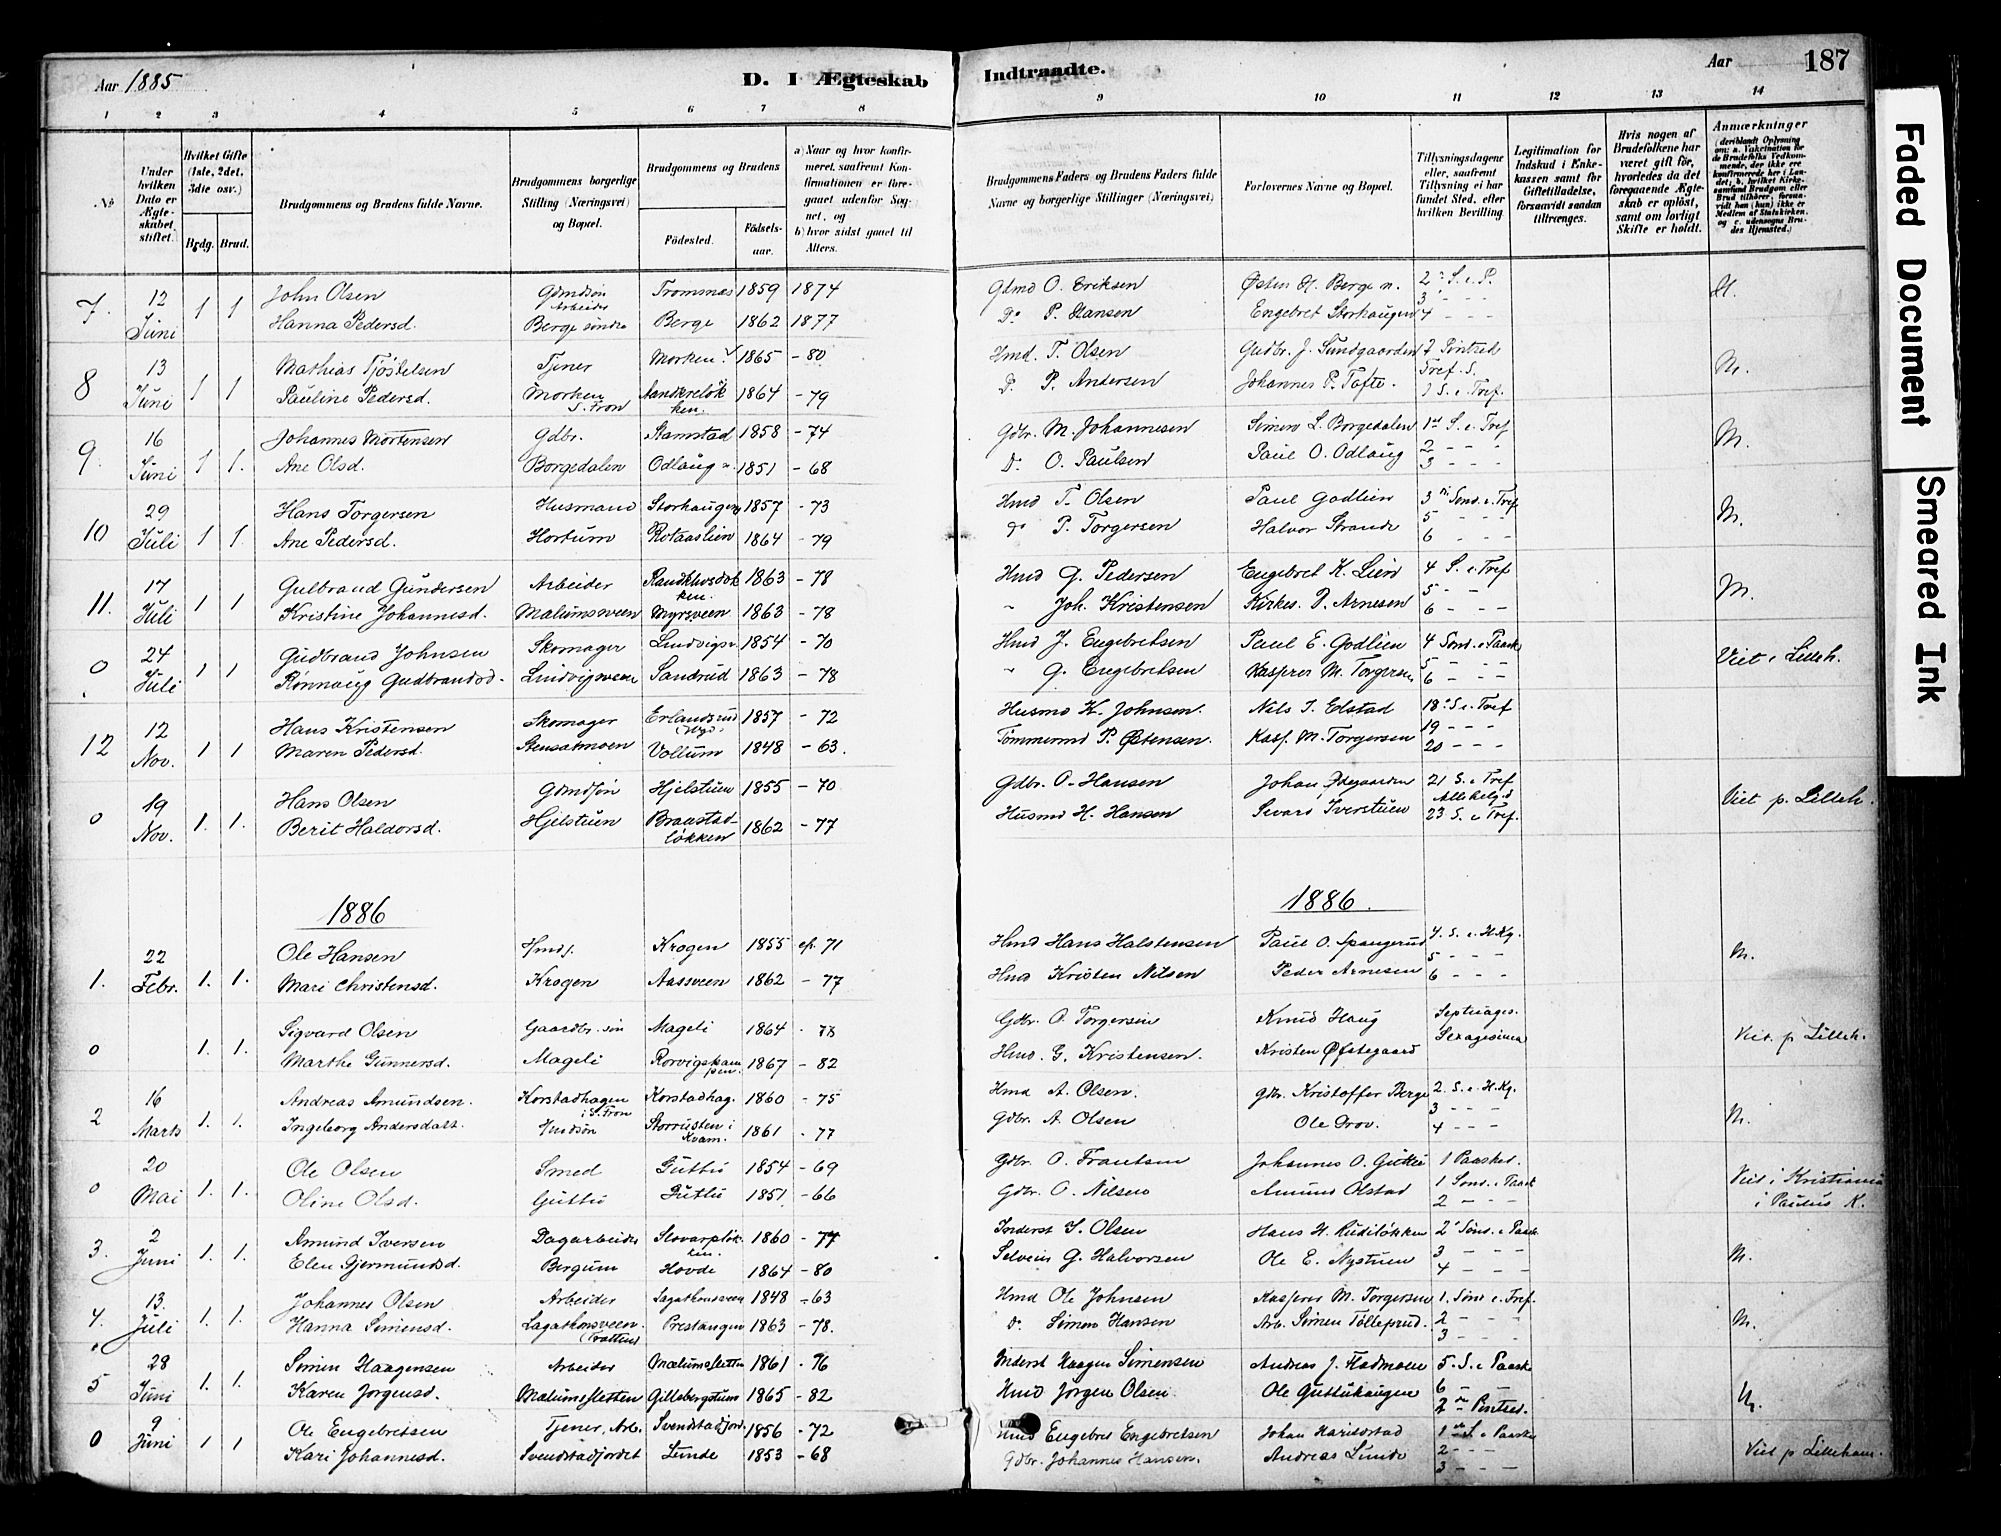 Aar 1885
D. I Ægteskab
Indtraadte.
Aar
187
1 2 3 4 5 6 7 8 9 10 11 12 13 14
No
Under hvilken Dato er Ægteskabet stiftet.
Hvilket Gifte (1ste, 2det, 3die osv.)
Brdg. Brud.
Brudgommens og Brudens fulde Navne.
Brudgommens borgerlige Stilling (Næringsvei) og Bopæl.
Brudgommens og Brudens
Fødested.
Fødselsaar.
a) Naar og hvor konfirmeret, saafremt Konfirmationen er foregaaet udenfor Sognet, og
b) hvor sidst gaaet til Alters.
Brudgommens Faders og Brudens Faders fulde Navne og borgerlige Stillinger (Næringsvei)
Forlovernes Navne og Bopæl.
Tillysningsdagene eller, saafremt Tillysning ei har fundet Sted, efter hvilken Bevilling
Legitimation for Indskud i Enkekassen samt for Giftetilladelse, forsaavidt saadan tiltrænges.
Hvis nogen af Brudefolkene har været gift før, hvorledes da det foregaaende Ægteskab er opløst, samt om lovligt Skifte er holdt.
Anmærkninger
(deriblandt Oplysning om: a. Vakcination for de Brudefolks Vedkommende, der ikke ere konfirmerede her i Landet; b. hvilket Kirkesamfund Brudgom eller Brud tilhører, forsaavidt han (hun) ikke er Medlem af Statskirken, og c. udensogns Brudes Hjemsted.)
7. 12 Juni 1 1 John Olsen Gdmdsøn Arbeider Trommæs 1859 1874 Gdmd O. Eriksen Østen H. Berge n. 2n S. e. P.
Hanna Pedersd. Berge søndre Berge 1862 1877 Do P. Hansen Engebret Storhaugen 3 - - - 4 - - -
8 13 Juni 1 1 Mathias Tjøstelsen Tjener Morken 1865 - 80 Hmd. T. Olsen Gudbr. J. Sundgaarden 2 Pintsed Tref. S. M.
Pauline Pedersd. Morken S. Fron 1864 - 79 D. P. Andersen Johannes P. Tofte. 1 S. e. Tref.
9. 16 Juni 1 1. Johannes Mortensen Gdbr. Stamstad 1858 - 74 Gdbr. M. Johannesen Simen L. Borgedalen 1st S. e. Tref M.
Ane Olsd. Borgedalen Odlaug 1851 - 68 Do O. Paulsen Paul O. Odlaug 2 - - - 3 - - -
10 29 Juli 1 1. Hans Torgersen Husmand Storhaugen 1857 - 73 Hmd T. Olsen Paul Godlien 3n Sønd. e. Tref M.
Ane Pedersd. Hortum Rotaaslien 1864 - 79 do P. Torgersen Halvor Strande 5 - - - 6 - - -
11. 17 Juli 1 1 Gulbrand Gundersen Arbeider 1863 - 78 Hmd G. Pedersen Engebret K. Lien 4 S. e. Tref M.
Kristine Johannesd. Mælumsveen Myrsveen 1863 - 78 " Joh. Kristensen Kirkes. P. Arnesen 5 - - - 6 - - -
0 24 Juli 1 1 Gudbrand Johnsen Skomager Lundvigsv. 1854 - 70 Hmd J. Engebretsen Paul E. Godlien 4 Sønd. e. Paask Viet i Lilleh.
Rønnaug Gudbrandsd. Lundvigsveen Sandrud 1863 - 78 " G. Engebretsen Kasper M. Torgersen 5 - - - 6 - - -
12 12 Nov. 1 1 Hans Kristensen Skomager Erlandsrud 1857 - 72 Husmd K. Johnsen. Nils T. Elstad 18. S. e. Tref
Maren Pedersd. Vollum 1848 - 63. Tømmermd P. Østensen. Kasp. M. Torgersen 19 - - - 20 - - -
0 19 Nov. 1. 1. Hans Olsen Gdmdsøn Hjelstuen 1855 - 70 Gdbr. O. Hansen Johan Ødegaarden 21 S. e. Tref Viet p. Lilleh.
Berit Haldorsd. Hjelstuen Braastadløkken 1862 - 77 Husmd H. Hansen Sivard Iverstuen Allehelgd 23 S. e. Tref.
1886 1886.
1. 22 Febr. 1. 1. Ole Hansen Hmd. Krogen 1855 71 Hmd Hans Halstensen Paul O. Spangerud 4. S. e. H.Kg. M.
Mari Christensd. Krogen Aassveen 1862 - 77 Hmd Kristen Nilsen Peder Arnesen 5 - - - 6 - - -
0 1. 1. Sigvard Olsen Gaardbr. søn Mageli 1864 - 78 Gdbr. O. Torgersen Knud Haug Septuages. Viet. p Lilleh.
Marthe Gunnersd. Mageli Rorvigskampen. 1867 - 82 Hmd. G. Kristensen. Kristen Øfstegaard Sexagesima
2 16 Marts 1. 1. Andreas Amundsen. Korstadhagen i S. Fron Korstadhag. 1860 - 75 Hmd A. Olsen. Gbr. Kristoffer Berge 2. S. e. H.Kg. M.
Ingeborg Andersdatt. Hmdsøn Storrusten i Kvam. 1861 - 77 Gdbr. A. Olsen Ole Grov. 3 - - - 4 - - -
0 20 Mai 1. 1. Ole Olsen Smed Guttu 1854 - 69 Gdbr. O. Frantsen Johannes O. Guttu 1 Paasked. Viet i Kristiania
Oline Olsd. Guttu Guttu 1851. - 66 Gdbr. O. Nilsen Amund Olstad 1 Sønd. e Paask 2 - - - i Paulus K.
3. 2 Juni 1. 1. Amund Iversen Dagarbeider 1860 - 77 Inderst I. Olsen Hans H. Rudiløkken 2' Sønd. e Paask M.
Elen Gjermundsd. Bergum Hovde 1864 - 80 Selveier G. Halvorsen Ole E. Nystuen 3 - - - 4 - - -
4. 13. Juli 1. 1. Johannes Olsen Arbeider 1848 - 63 Hmd Ole Johnsen Kasper M. Torgersen 1. Sønd e. Tref. M.
Hanna Simensd. Prestangen 1863 - 78. D. Simen Hansen Arb. Simen Tolleprud. 2 - - - 3 - - -
5 28 Juni 1. 1. Simen Haagensen Arbeider Mælumsletten 1861 - 76 Inderst Haagen Simensen Andreas J. Fladmoen 5. S. e Paaske M.
Karen Jørgensd. Mælumsletten Gillebergstuen 1865 - 82 Hmd Jørgen Olsen Ole Guttuhaugen 6 - - - 2n Pintsed.
0 9 Juni 1 1 Ole Engebretsen Tjener, Arb. Svendstadjord. 1856 - 72 Hmd Engebret Engebretsen Johan Karlsstad 1st S. e Paaske
Kari Johannesd. Svendstadjordet Lunde 1853 - 68 Gdbr. Johannes Hansen. Andreas Lunde 2 - - - 3 - - - Viet p Lilleham.
Faded Document
Smeared Ink